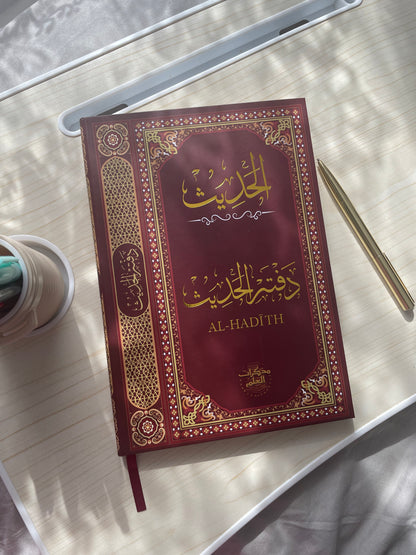 الحديث
دفتر الحديث
AL-HADĪTH
مذكرات
العلم
دفتر الحديث